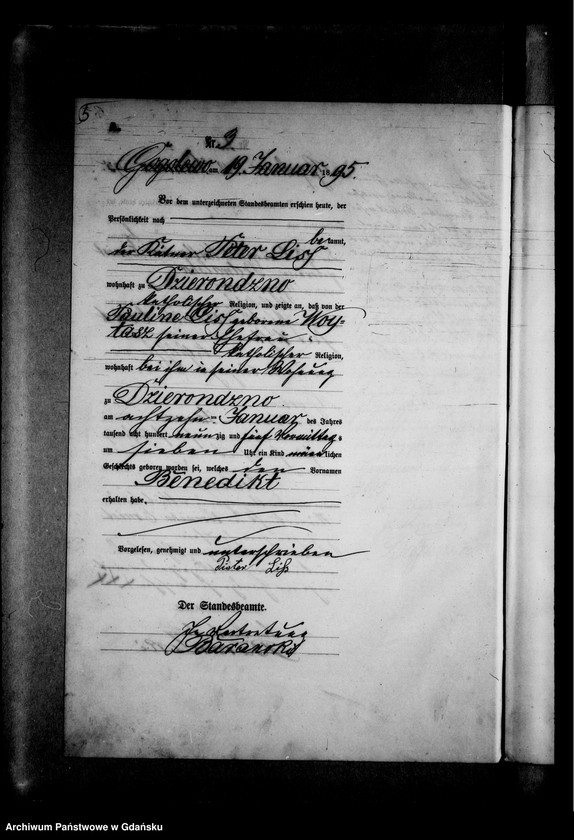 5
Nr. 3
Gogolewo am 19 Januar 1895.
Vor dem unterzeichneten Standesbeamten erschien heute, der
Persönlichkeit nach
bekannt,
der Kätner Peter Lisz
wohnhaft zu Dzierondzno
katholischer Religion, und zeigte an, daß von der
Pauline Lisz geborene Woy-
tasz seiner Ehefrau
katholischer Religion,
wohnhaft bei ihm in seiner Wohnung
zu Dzierondzno
am achtzehn ten Januar des Jahres
tausend acht hundert neun zig und fünf Vormittags
um sieben Uhr ein Kind männlichen
Geschlechts geboren worden sei, welches den Vornamen
Benedikt
erhalten habe.
Vorgelesen, genehmigt und unterschrieben
Pioter Liss
Der Standesbeamte.
In Vertretung
Baranoks
Archiwum Państwowe w Gdańsku